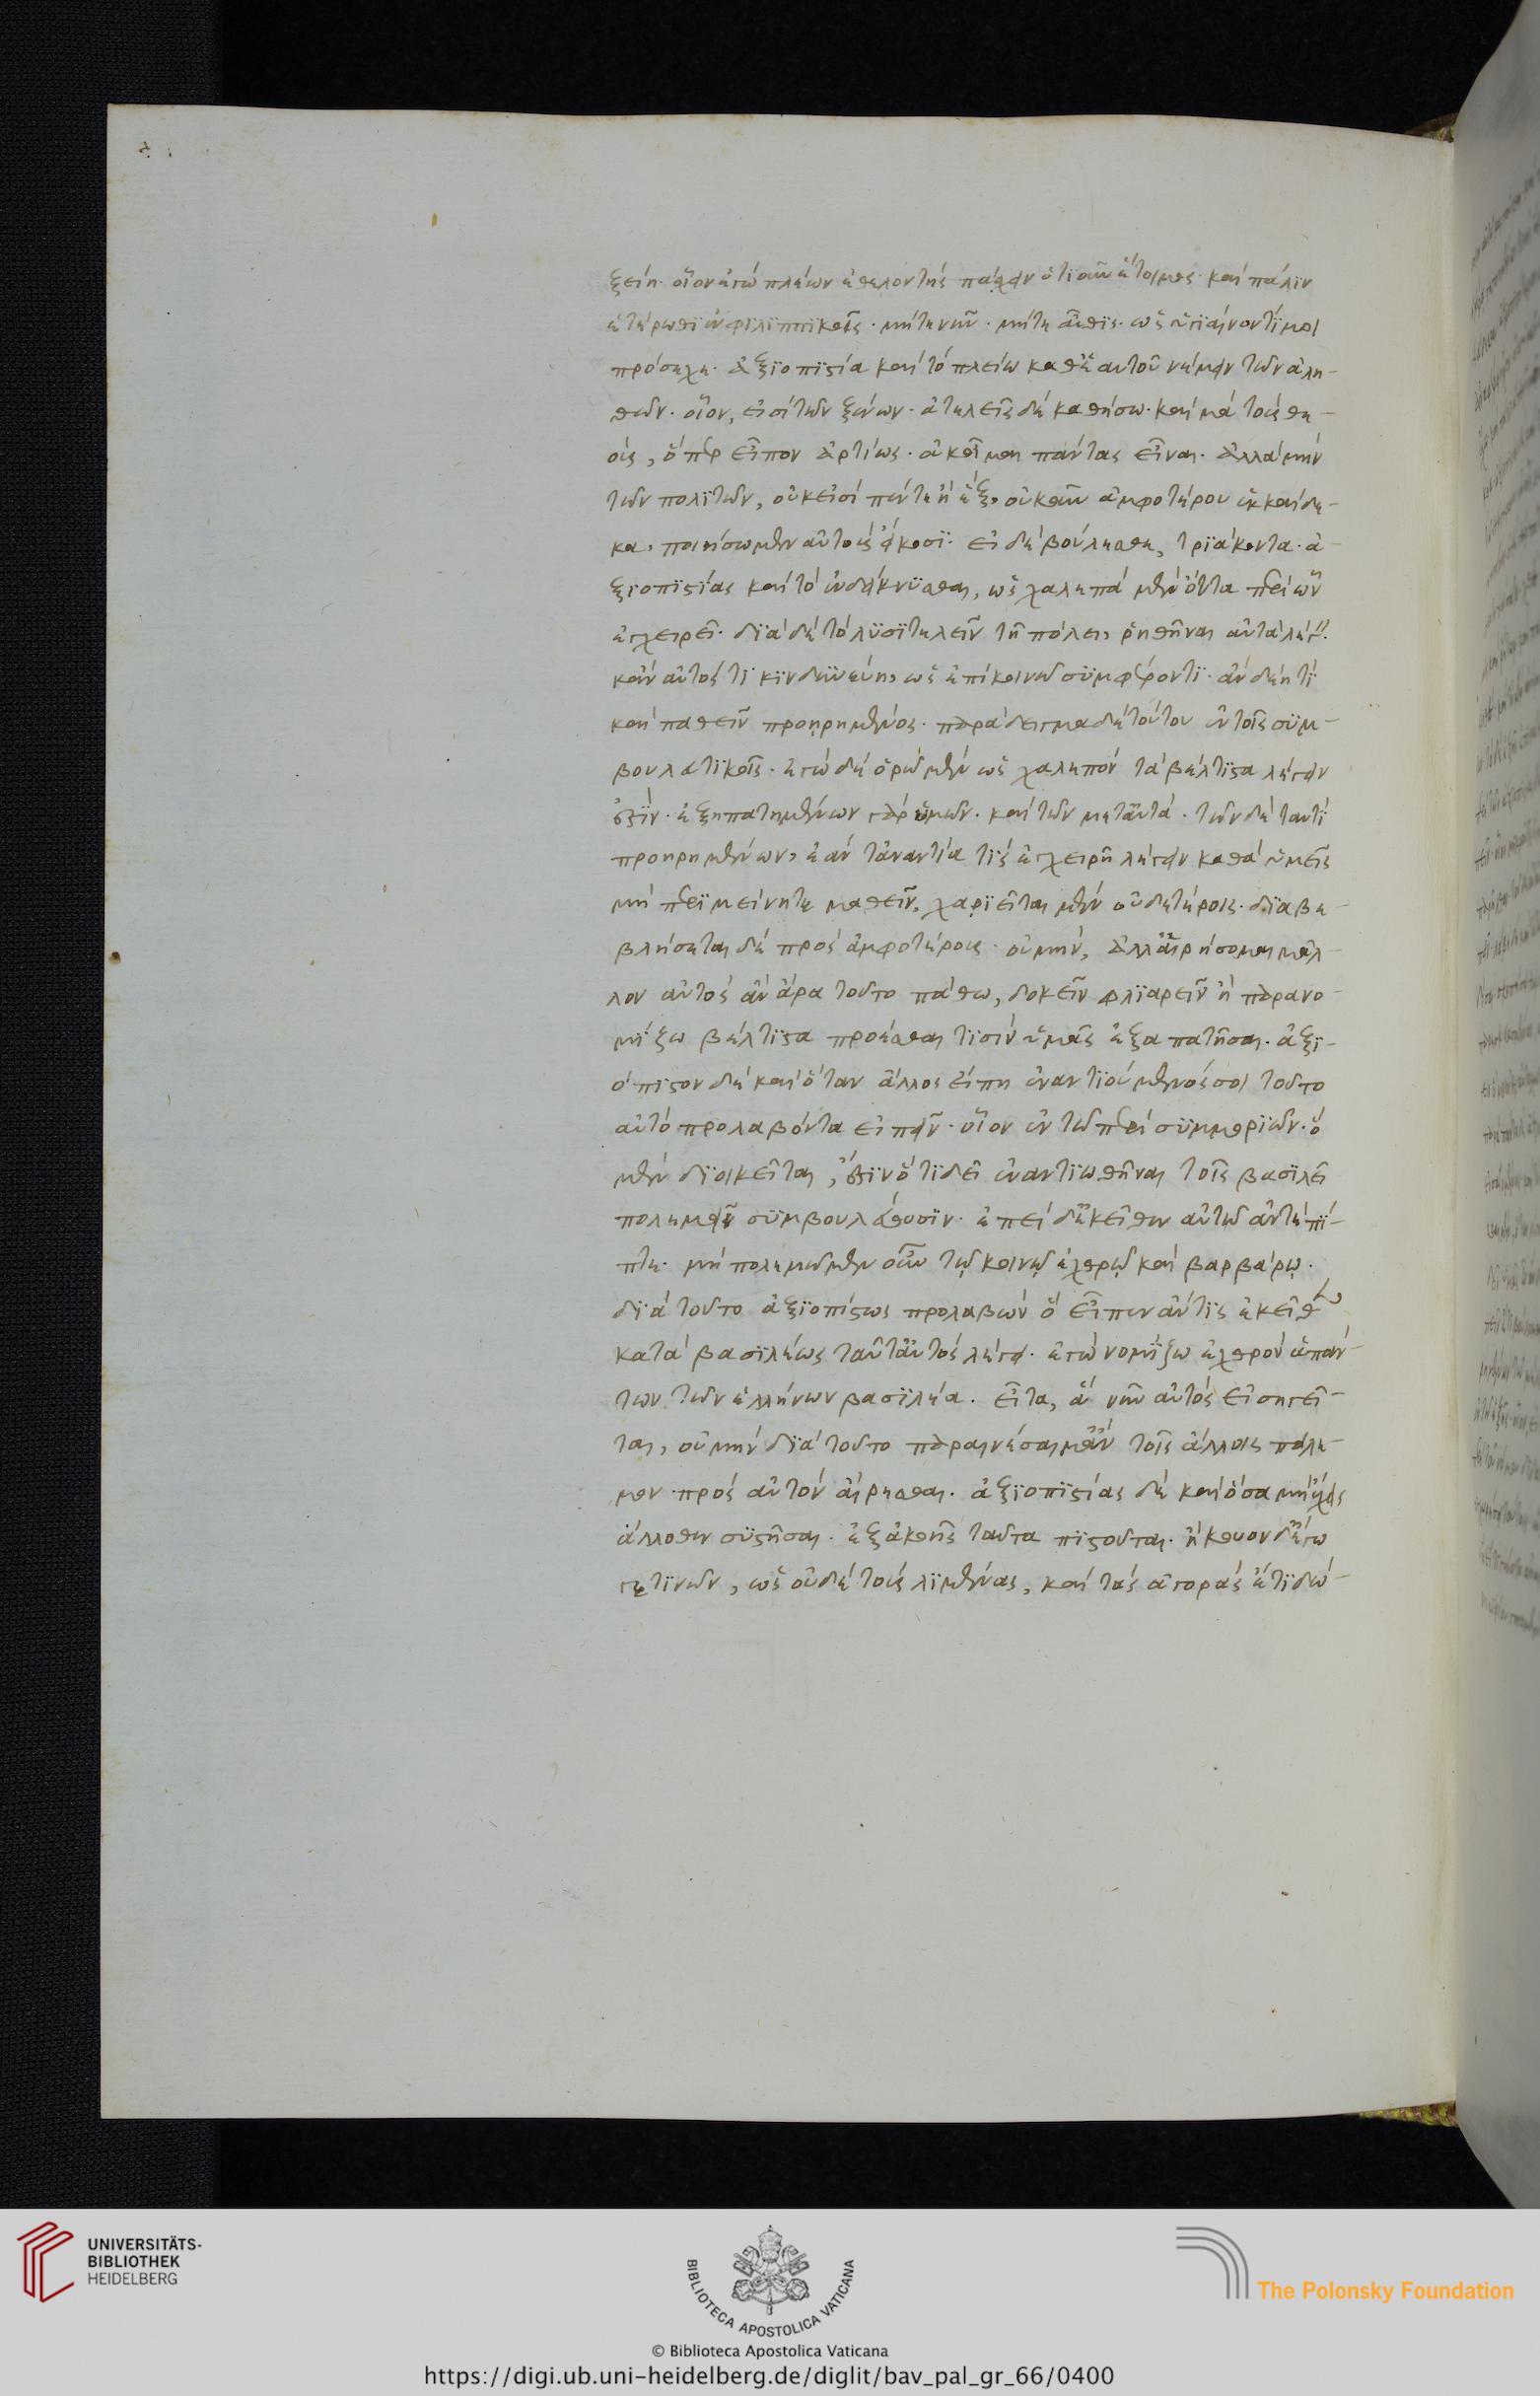 ξείη· οἷον ἐγὼ πλέων ἐθελοντὴς πάσχειν ὁτιοῦν ἕτοιμος· καὶ πάλιν
ἑτέρωθι ἐν φιλιππικοῖς· μήτε νῦν· μήτε αὖθις· ὡς ὑγιαίνοντί μοι
προσέχη· ἀξιοπιστία καὶ τὸ πλείω καθ' ἑαυτοῦ νέμειν τῶν ἀλη-
θῶν· οἷον, εἰσὶ τῶν ξένων· ἀτελεῖς δέκα θήσω· καὶ μὰ τοὺς θε-
οὺς, ὅπερ εἶπον ἀρτίως· οὐκ οἶμαι πάντας εἶναι· ἀλλὰ μὴν
τῶν πολιτῶν, οὐκ εἰσὶ πέντε ἢ ἕξ, οὐκοῦν ἀμφοτέρου ἑκκαίδε-
κα, ποιήσωμεν αὐτοὺς εἴκοσι· εἰ δὲ βούλεσθε, τριάκοντα· ἀ-
ξιοπιστίας καὶ τὸ ἐνδείκνυσθαι, ὡς χαλεπὰ μὲν ὄντα περὶ ὧν
ἐγχειρεῖ· διὰ δὲ τὸ λυσιτελεῖν τῇ πόλει, ῥηθῆναι αὐτὰ λέγ
κἂν αὐτός τι κινδυνεύῃ, ὡς ἐπὶ κοινῷ συμφέροντι· ἂν δέῃ τι
καὶ παθεῖν προῃρημένος· παράδειγμα δὲ τούτου ἐν τοῖς συμ-
βουλευτικοῖς· ἐγὼ δὲ ὁρῶ μὲν ὡς χαλεπὸν τὰ βέλτιστα λέγειν
ἐστίν· ἐξηπατημένων γὰρ ὑμῶν· καὶ τῶν μὲν ταῦτα· τῶν δὲ ταυτὶ
προῃρημένων, ἐὰν τἀναντία τις ἐγχειρῇ λέγειν καθὰ ὑμεῖς
μὴ περιμείνητε μαθεῖν, χαριεῖται μὲν οὐδετέροις· διαβε-
βλήσεται δὲ πρὸς ἀμφοτέρους· οὐ μὴν, ἀλλ' αἱρήσομαι μᾶλ-
λον αὐτὸς ἂν ἄρα τοῦτο πάθω, δοκεῖν φλυαρεῖν ἢ παρ' ἃ νο-
μίζω βέλτιστα προέσθαι τισὶν ὑμᾶς ἐξαπατῆσαι· ἀξι-
όπιστον δὲ καὶ ὅταν ἄλλος εἴπῃ ἐναντιούμενός σοι τοῦτο
αὐτὸ προλαβόντα εἰπεῖν· οἷον ἐν τῷ περὶ συμμοριῶν· ὃ
μὲν διοικεῖται, ἐστὶν ὅτι δεῖ ἐναντιωθῆναι τοῖς βασιλεῖ
πολεμεῖν συμβουλεύουσιν· ἐπεὶ δ' ἐκεῖθεν αὐτῷ ἀντέπι-
πτε· μὴ πολεμῶμεν οὖν τῷ κοινῷ ἐχθρῷ καὶ βαρβάρῳ·
διὰ τοῦτο ἀξιοπίστως προλαβὼν ὃ εἶπεν ἄν τις ἐκεῖθεν
κατὰ βασιλέως ταῦτ' αὐτὸς λέγει· ἐγὼ νομίζω ἐχθρὸν ἁπάν-
των τῶν ἑλλήνων βασιλέα· εἶτα, ἃ νῦν αὐτὸς εἰσηγεῖ-
ται, οὐ μὴν διὰ τοῦτο παραινέσαιμ' ἂν τοῖς ἄλλοις πόλε-
μον πρὸς αὐτὸν αἴρεσθαι· ἀξιοπιστίας δὲ καὶ ὅσα μὴ ἔχεις
ἄλλοθεν συστῆσαι· ἐξ ἀκοῆς ταῦτα πιστοῦται· ἤκουον δ' ἔγω
γέ τινων, ὡς οὐδὲ τοὺς λιμένας, καὶ τὰς ἀγορὰς ἔτι δώ-
UNIVERSITÄTS-
BIBLIOTHEK
HEIDELBERG
BIBLIOTECA APOSTOLICA VATICANA
© Biblioteca Apostolica Vaticana
The Polonsky Foundation
https://digi.ub.uni-heidelberg.de/diglit/bav_pal_gr_66/0400